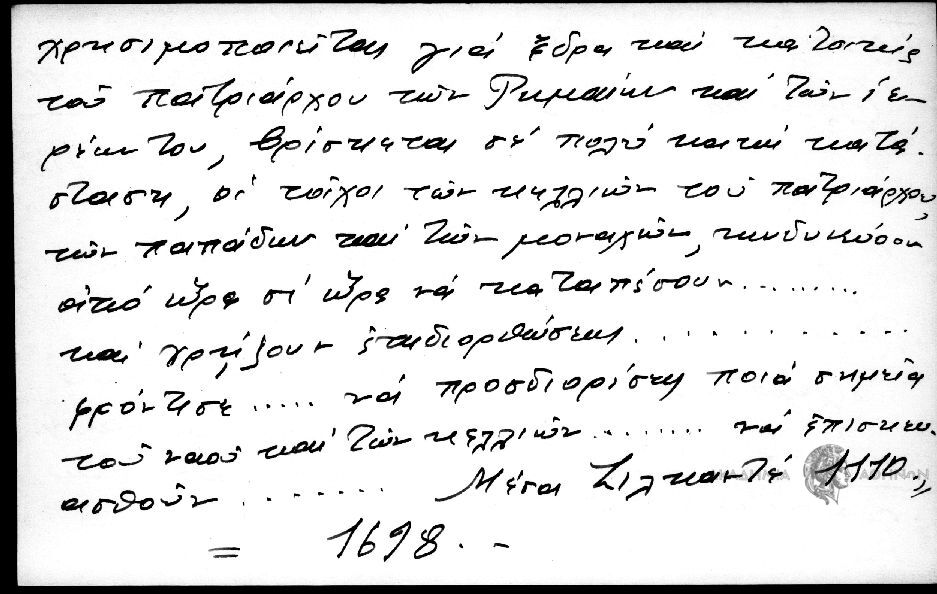 χρησιμοποιεῖται γιά ἕδρα καί κατοικία
τοῦ πατριάρχου τῶν Ρωμαίων καί τῶν ἱε-
ρέων του, βρίσκεται σέ πολύ κακή κατά-
σταση, οἱ τοῖχοι τῶν κελλιῶν τοῦ πατριάρχου,
τῶν παπάδων καί τῶν μοναχῶν, κινδυνεύουν
ἀπό ὥρα σέ ὥρα νά καταπέσουν........
καί χρῄζουν ἐπιδιορθώσεως............
φρόντισε..... νά προσδιορίσῃ ποιά σημεῖα
τοῦ ναοῦ καί τῶν κελλιῶν........ νά ἐπισκευ-
ασθοῦν........ Μέσα Ζιλκαντέ 1110»
= 1698.-